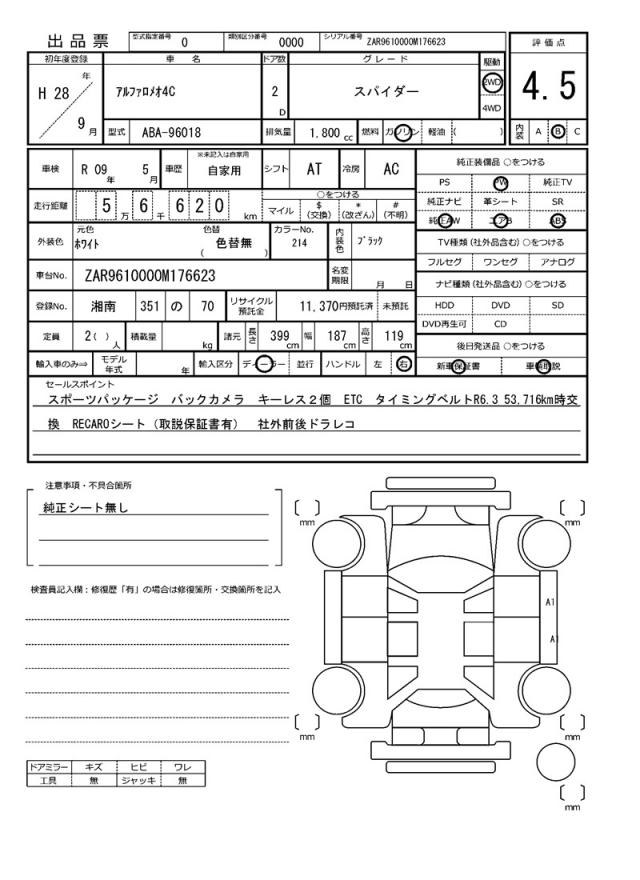 出品票 型式指定番号 0 類別区分番号 0000 シリアル番号 ZAR9610000M176623
初年度登録 車 名 ドア数 グレード 駆動 評価点
H 28 年 9 月 アルファロメオ4C 2 D スパイダー 2WD 4WD 4.5
型式 ABA-96018 排気量 1,800 cc 燃料 ガソリン 軽油 ( ) 内装 A B C
車検 R 09 年 5 月 車歴 ※未記入は自家用 自家用 シフト AT 冷房 AC
走行距離 5 万 6 千 6 2 0 km ○をつける
マイル $ (交換) * (改ざん) # (不明)
外装色 元色 ホワイト 色替 色替無 ( ) カラーNo. 214 内装色 ブラック
車台No. ZAR9610000M176623 名変期限 月 日
登録No. 湘南 351 の 70 リサイクル預託金 11,370円預託済 未預託
定員 2( ) 人 積載量 kg 諸元 長さ 399 cm 幅 187 cm 高さ 119 cm
輸入車のみ⇒ モデル年式 年 輸入区分 ディーラー 並行 ハンドル 左 右
純正装備品 ○をつける
PS PW 純正TV
純正ナビ 革シート SR
純正AW エアB ABS
TV種類 (社外品含む) ○をつける
フルセグ ワンセグ アナログ
ナビ種類 (社外品含む) ○をつける
HDD DVD SD
DVD再生可 CD
後日発送品 ○をつける
新車保証書 車輌取説
セールスポイント
スポーツパッケージ バックカメラ キーレス2個 ETC タイミングベルトR6.3 53,716km時交
換 RECAROシート (取説保証書有) 社外前後ドラレコ
注意事項・不具合箇所
純正シート無し
検査員記入欄：修復歴「有」の場合は修復箇所・交換箇所を記入
mm
mm
A1
A1
mm
mm
mm
ドアミラー キズ ヒビ ワレ
工具 無 ジャッキ 無